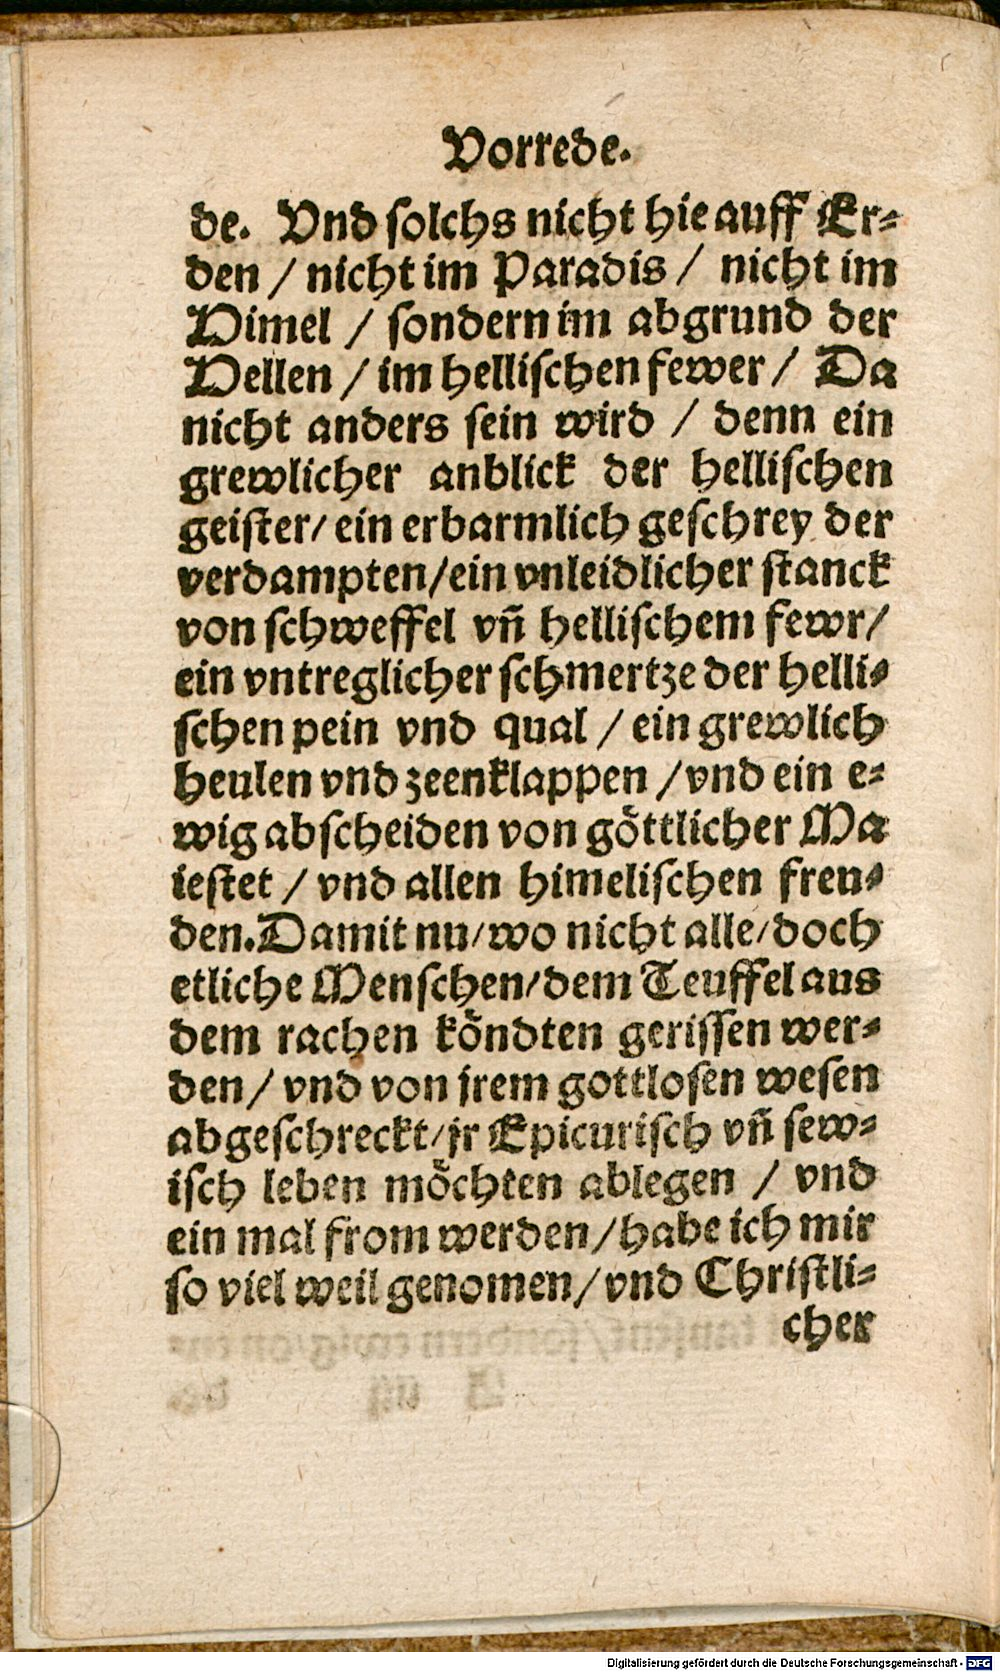 Vorrede.
de. Vnd ſolchs nicht hie auff Er⸗
den / nicht im Paradis / nicht im
Himel / ſondern im abgrund der
Hellen / im helliſchen fewer / Da
nicht anders ſein wird / denn ein
grewlicher anblick der helliſchen
geiſter / ein erbarmlich geſchrey der
verdampten / ein vnleidlicher ſtanck
von ſchweffel vñ helliſchem fewr /
ein vntreglicher ſchmertze der helli⸗
ſchen pein vnd qual / ein grewlich
heulen vnd zeenklappen / vnd ein e⸗
wig abſcheiden von göttlicher Ma
ieſtet / vnd allen himeliſchen freu⸗
den. Damit nu / wo nicht alle / doch
etliche Menſchen / dem Teuffel aus
dem rachen köndten geriſſen wer⸗
den / vnd von jrem gottloſen weſen
abgeſchreckt / jr Epicuriſch vñ ſew⸗
iſch leben möchten ablegen / vnd
ein mal from werden / habe ich mir
ſo viel weil genomen / vnd Chriſtli⸗
cher
Digitalisierung gefördert durch die Deutsche Forschungsgemeinschaft - DFG